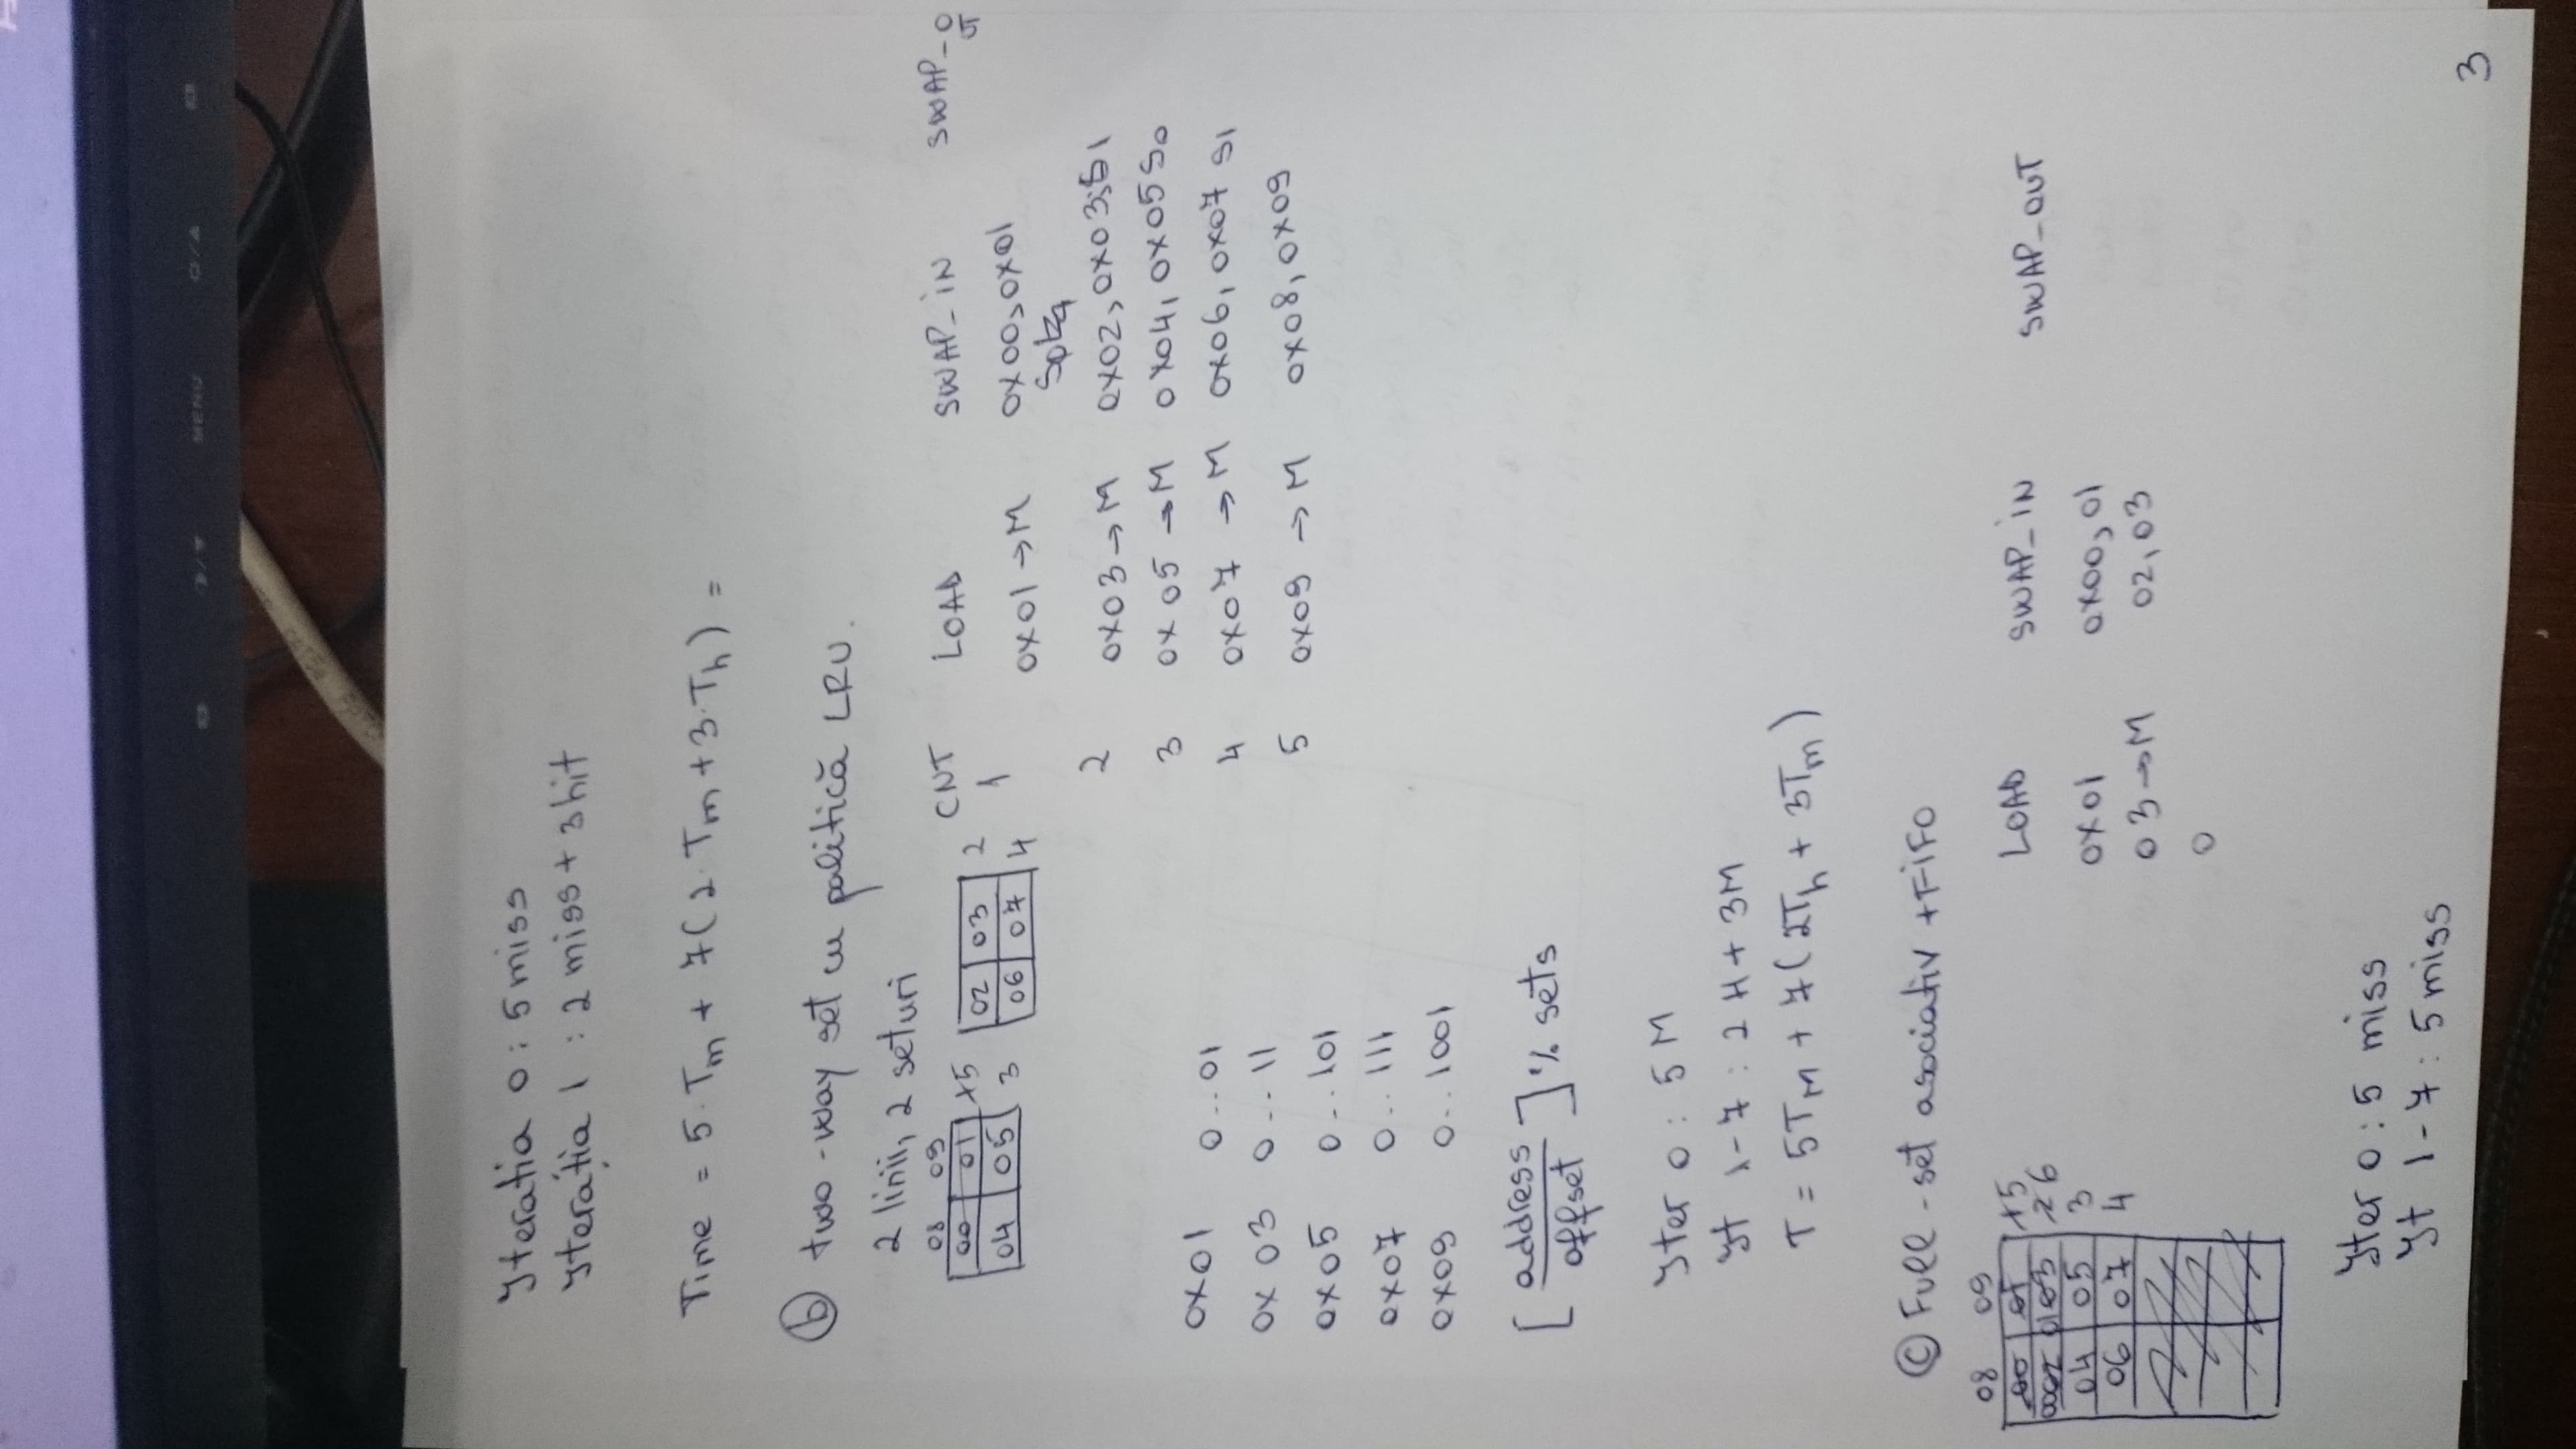 MENU
Iteratia 0 : 5 miss
Iterația 1 : 2 miss + 3 hit
Time = 5·Tm + 7(2·Tm + 3·Th) =
ⓑ two-way set cu politică LRU.
2 linii, 2 seturi
08 09
00 01 5
04 05 3
02 03 2
06 07 4
CNT LOAD SWAP_IN SWAP_OUT
1 0x01 → M 0x00, 0x01
2 0x03 → M 0x02, 0x03; S1
3 0x05 → M 0x04, 0x05 S0
4 0x07 → M 0x06, 0x07 S1
5 0x09 → M 0x08, 0x09
0x01 0..01
0x03 0...11
0x05 0...101
0x07 0...111
0x09 0...1001
[address / offset] % sets
Iter 0 : 5 M
It 1-7 : 2 H + 3M
T = 5TM + 7(2Th + 3Tm)
ⓒ Full-set asociativ + FiFO
08 09
00 01 5
02 03 2 6
04 05 3
06 07 4
LOAD SWAP_IN SWAP_OUT
0x01 0x00, 01
03 → M 02, 03
0
Iter 0 : 5 miss
It 1-7 : 5 miss
3